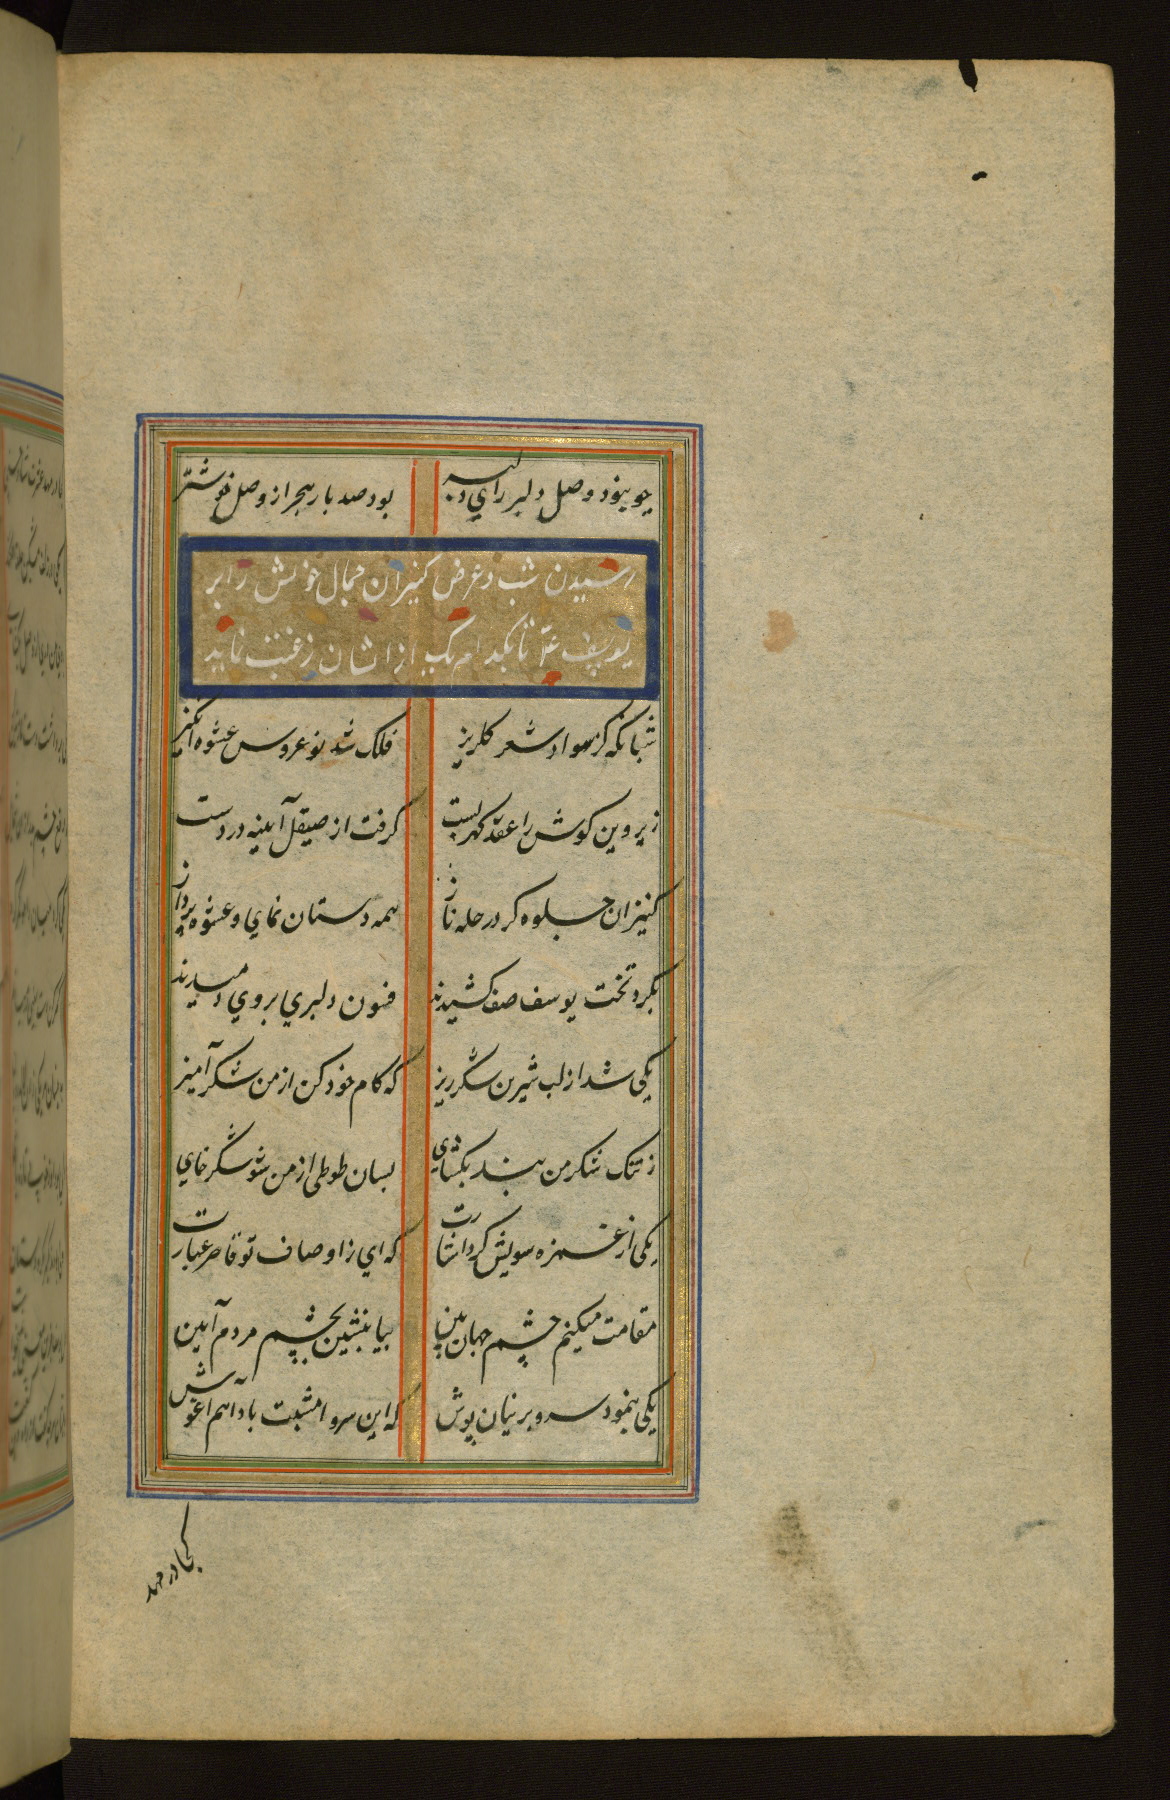 چو نبود وصل دلبر رای دلبر بود صد بار هجر از وصل خوشتر
رسیدن شب و عرض کنیزان جمال خویش را بر
یوسف عم تا بکدام یک از ایشان رغبت نماید
شبانگه کز سواد شعر کلریز فلک شد نو عروس عشوه انکیز
ز پروین کوش را عقد کهر بست کرفت از صیقل آیینه در دست
کنیزان جلوه کر در حله ناز همه دستان نمای و عشوه پرداز
بکرد تخت یوسف صف کشیدند فنون دلبری بروی دمیدند
یکی شد از لب شیرین شکر ریز که کام خود کن از من شکر آمیز
ز تنک شکر من بند بکشای بسان طوطی از من شو شکر خای
یکی از غمزه سویش کرد اشارت که ای ز اوصاف تو قاصر عبارت
مقامت میکنم چشم جهان بین بیا بنشین بچشم مردم آیین
یکی بنمود سرو پرنیان پوش که این سرو امشبت بادا هم آغوش
کجا در مهد